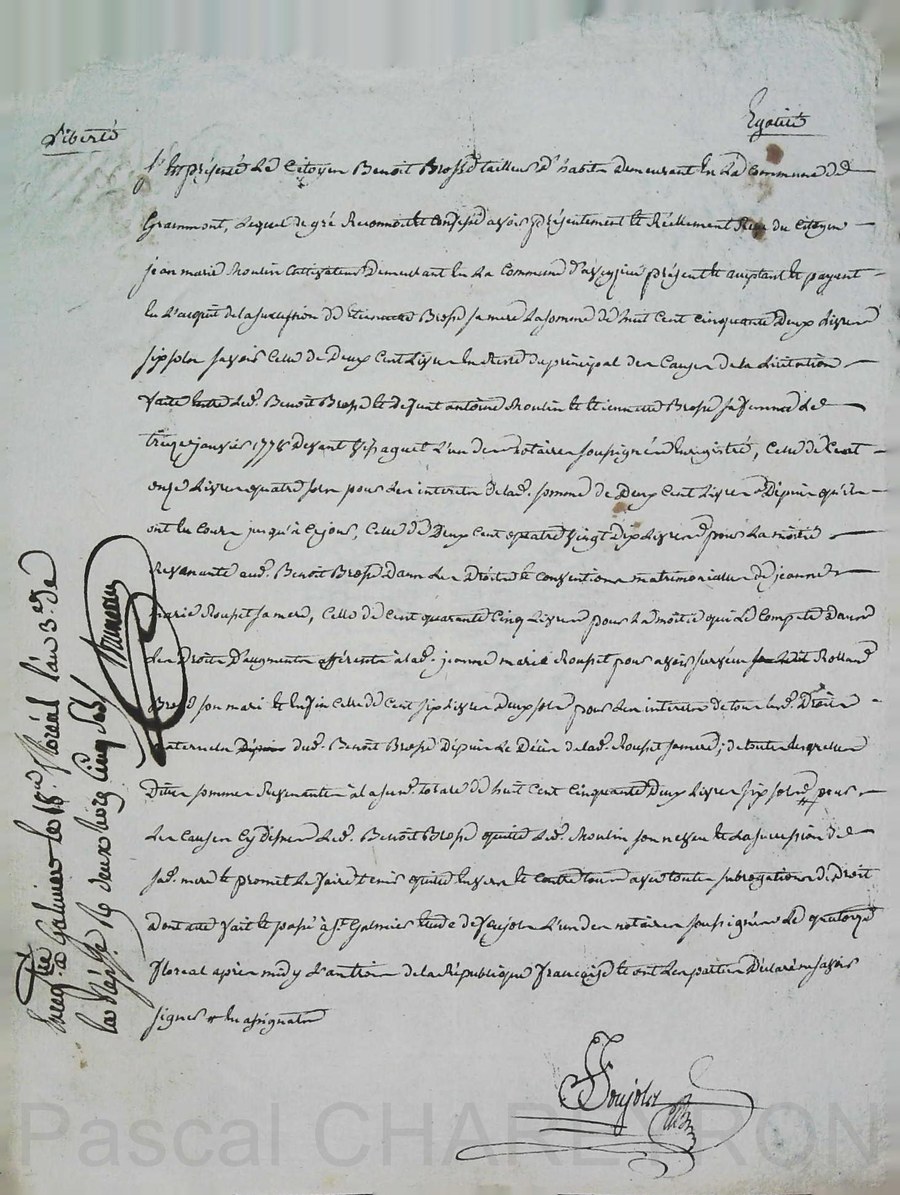 Liberté Egalité
S'est présenté Le Citoyen Benoit Brosse tailleur d'habits demeurant En La Commune de
Grammont, Lequel de gré Reconnoit et confesse avoir présentement et Réellement Reçu du Citoyen
jean marie Moulin Cultivateur Demeurant En La Commune d'aveyzieu présent et aceptant et payent
En L'acquit de la succession de Etiennette Brosse sa mere La somme de huit Cent cinquante Deux Livres
six sols savoir Celle de Deux Cent Livres En Reste du principal des Causes de la Licitation
faite Entre Led. Benoit Brosse et Defunt antoine Moulin et Etiennette Brosse sa femme Le
treize janvier 1778 Devant L'un des notaires soussignés Enregistré, Celle de Cent
onze Livres quatre sols pour Les interets de lad. somme de Deux Cent Livres Depuis qu'ils
ont Eu Cour jusqu'à Ce jour, Celle de Deux Cent quatre Vingt Dix Livres pour La moitié
Revenante aud. Benoit Brosse Dans Les Droits et Conventions matrimoniales de jeanne
Marie Rouset sa mere, Celle de Cent quarante Cinq Livres pour La moitié qui Le Compete Dans
Les Droits D'augment afférents à lad. jeanne marie Rouset pour avoir survécu Rolland
Brosse son mari et Enfin Celle de Cent six Livres Deux sols pour Les interets de tous Lesd. Droits
maternels dud. Benoit Brosse Depuis Le Décès de lad. Rouset sa mere; de toutes Lesquelles
Dites sommes Revenantes à la susd. totale de huit Cent Cinquante Deux Livres six sols pour
Les Causes Cy Dessus Led. Benoit Brosse quitte Led. Moulin son neveu et La succession de
sad. mere et promet Le faire tenir quitte Envers et Contre tous avec toute subrogation de Droit
dont acte fait et passé à St. Galmier Etude de Soujolz L'un des notaires soussignés Le quatorze
floreal après midy L'an trois de la République francoise et ont Les parties Déclaré ne savoir
signer En assignats
Soujolz
Enregtré à Galmier le 18. floréal l'an 3. de
la Rép. f. deux livres cinq sols
Pascal CHAREYRON